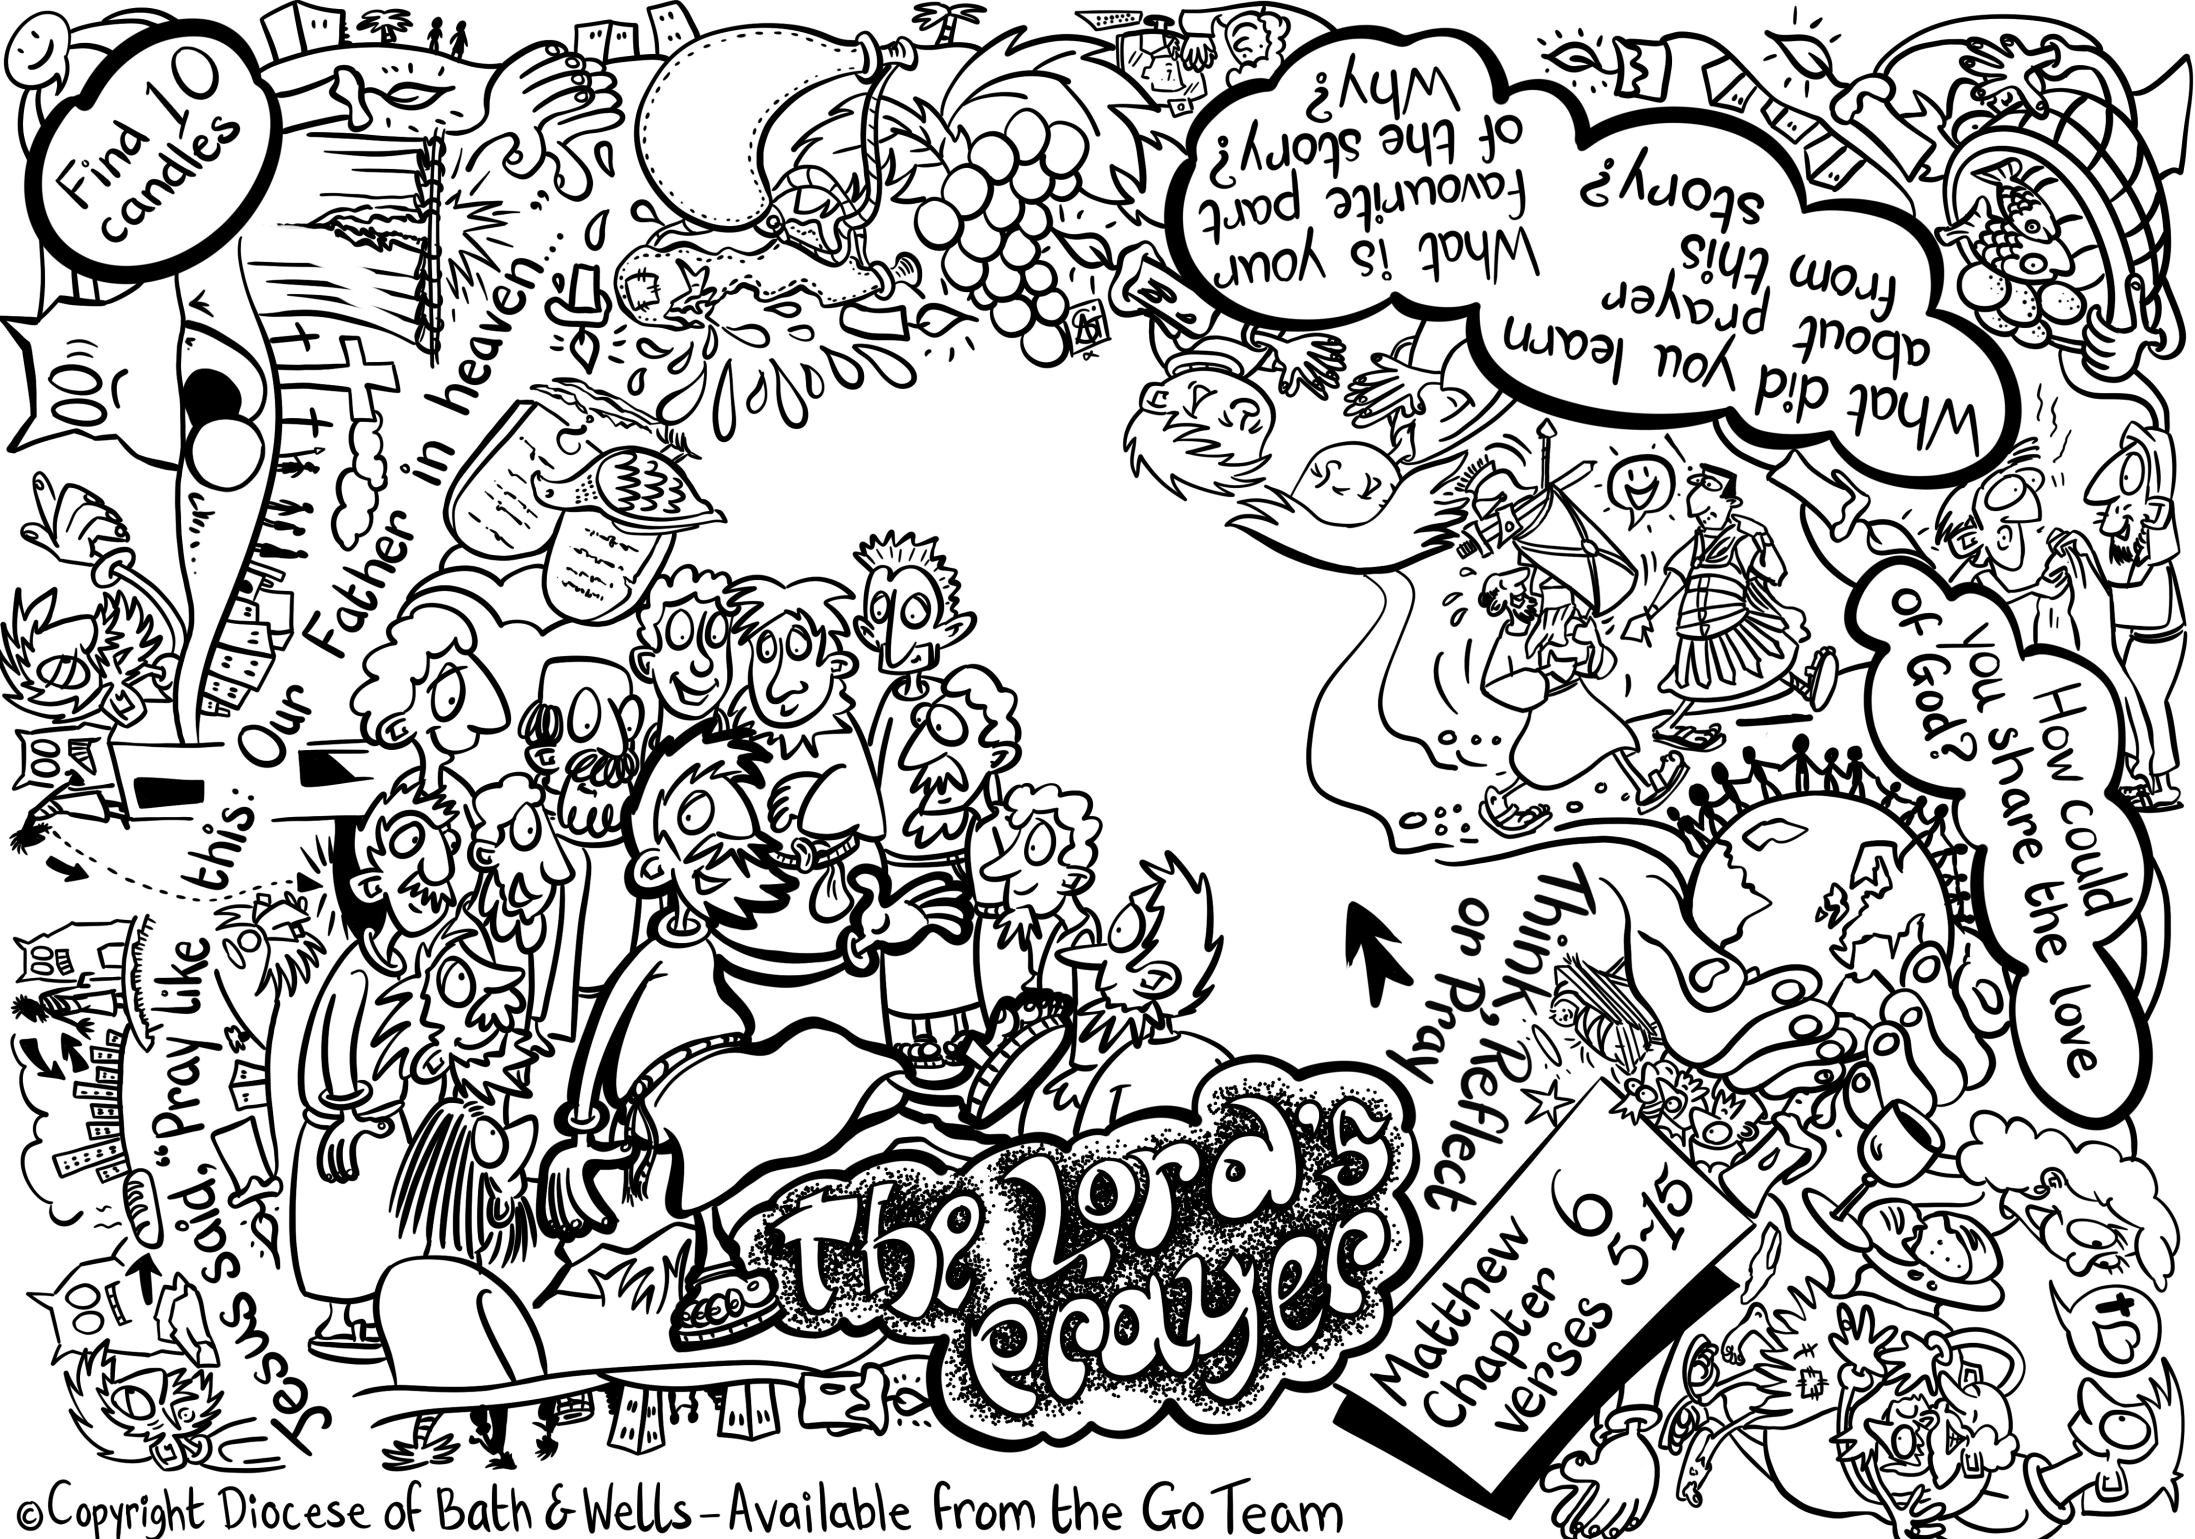 Find 10
candles
Jesus said, "Pray like this:
Our Father in heaven..."
What is your
favourite part
of the story?
Why?
What did you learn
about prayer
from this
story?
How could
you share the love
of God?
Think, Reflect
or Pray
The Lord's
Prayer
Matthew
Chapter 6
verses 5-15
© Copyright Diocese of Bath & Wells - Available from the Go Team